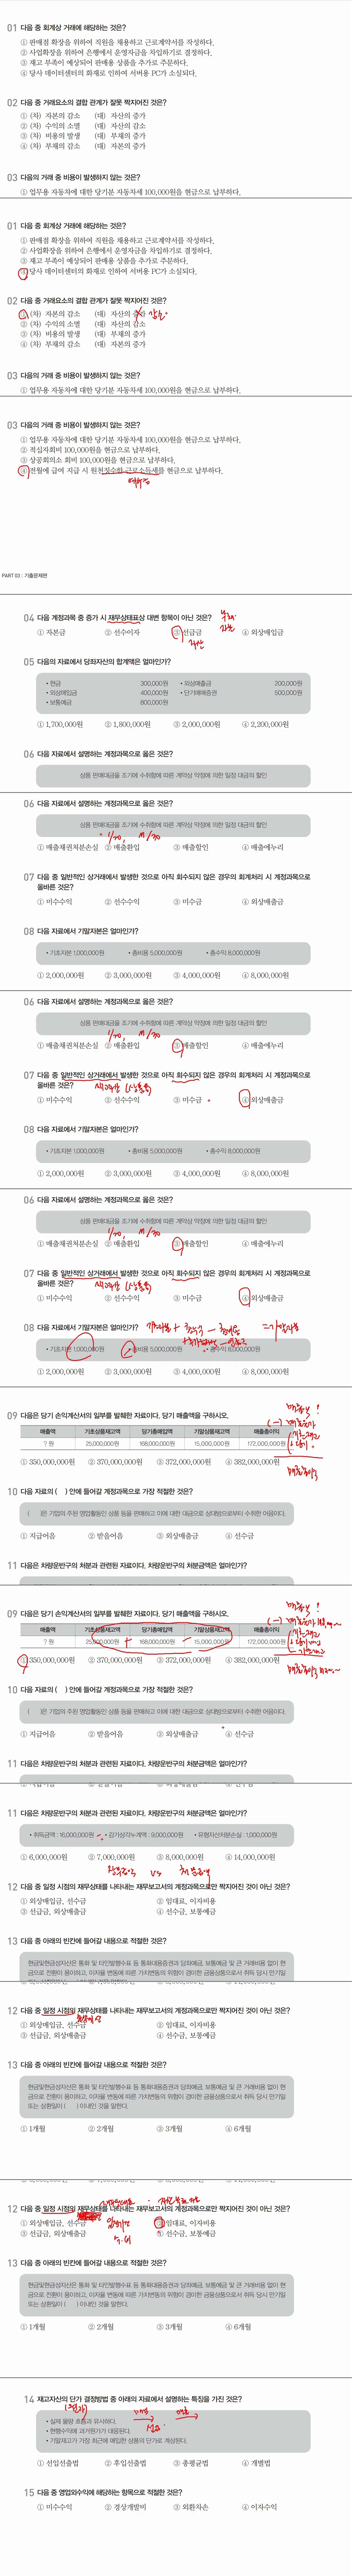 01 다음 중 회계상 거래에 해당하는 것은?
① 판매점 확장을 위하여 직원을 채용하고 근로계약서를 작성하다.
② 사업확장을 위하여 은행에서 운영자금을 차입하기로 결정하다.
③ 재고 부족이 예상되어 판매용 상품을 추가로 주문하다.
④ 당사 데이터센터의 화재로 인하여 서버용 PC가 소실되다.
02 다음 중 거래요소의 결합 관계가 잘못 짝지어진 것은?
① (차) 자본의 감소 (대) 자산의 증가
② (차) 수익의 소멸 (대) 자산의 감소
③ (차) 비용의 발생 (대) 부채의 증가
④ (차) 부채의 감소 (대) 자본의 증가
03 다음의 거래 중 비용이 발생하지 않는 것은?
① 업무용 자동차에 대한 당기분 자동차세 100,000원을 현금으로 납부하다.
01 다음 중 회계상 거래에 해당하는 것은?
① 판매점 확장을 위하여 직원을 채용하고 근로계약서를 작성하다.
② 사업확장을 위하여 은행에서 운영자금을 차입하기로 결정하다.
③ 재고 부족이 예상되어 판매용 상품을 추가로 주문하다.
④ 당사 데이터센터의 화재로 인하여 서버용 PC가 소실되다.
02 다음 중 거래요소의 결합 관계가 잘못 짝지어진 것은?
① (차) 자본의 감소 (대) 자산의 증가 감소
② (차) 수익의 소멸 (대) 자산의 감소
③ (차) 비용의 발생 (대) 부채의 증가
④ (차) 부채의 감소 (대) 자본의 증가
03 다음의 거래 중 비용이 발생하지 않는 것은?
① 업무용 자동차에 대한 당기분 자동차세 100,000원을 현금으로 납부하다.
03 다음의 거래 중 비용이 발생하지 않는 것은?
① 업무용 자동차에 대한 당기분 자동차세 100,000원을 현금으로 납부하다.
② 적십자회비 100,000원을 현금으로 납부하다.
③ 상공회의소 회비 100,000원을 현금으로 납부하다.
④ 전월에 급여 지급 시 원천징수한 근로소득세를 현금으로 납부하다.
예수금
PART 03 : 기출문제편
04 다음 계정과목 중 증가 시 재무상태표상 대변 항목이 아닌 것은? 부채 자본
① 자본금 ② 선수이자 ③ 선급금 ④ 외상매입금
자산
05 다음의 자료에서 당좌자산의 합계액은 얼마인가?
• 현금 300,000원 • 외상매출금 200,000원
• 외상매입금 400,000원 • 단기매매증권 500,000원
• 보통예금 800,000원
① 1,700,000원 ② 1,800,000원 ③ 2,000,000원 ④ 2,200,000원
06 다음 자료에서 설명하는 계정과목으로 옳은 것은?
상품 판매대금을 조기에 수취함에 따른 계약상 약정에 의한 일정 대금의 할인
06 다음 자료에서 설명하는 계정과목으로 옳은 것은?
상품 판매대금을 조기에 수취함에 따른 계약상 약정에 의한 일정 대금의 할인
① 매출채권처분손실 ② 매출환입 ③ 매출할인 ④ 매출에누리
07 다음 중 일반적인 상거래에서 발생한 것으로 아직 회수되지 않은 경우의 회계처리 시 계정과목으로
올바른 것은?
① 미수수익 ② 선수수익 ③ 미수금 ④ 외상매출금
08 다음 자료에서 기말자본은 얼마인가?
• 기초자본 1,000,000원 • 총비용 5,000,000원 • 총수익 8,000,000원
① 2,000,000원 ② 3,000,000원 ③ 4,000,000원 ④ 8,000,000원
06 다음 자료에서 설명하는 계정과목으로 옳은 것은?
상품 판매대금을 조기에 수취함에 따른 계약상 약정에 의한 일정 대금의 할인
① 매출채권처분손실 ② 매출환입 ③ 매출할인 ④ 매출에누리
07 다음 중 일반적인 상거래에서 발생한 것으로 아직 회수되지 않은 경우의 회계처리 시 계정과목으로
올바른 것은?
① 미수수익 ② 선수수익 ③ 미수금 ④ 외상매출금
08 다음 자료에서 기말자본은 얼마인가?
• 기초자본 1,000,000원 • 총비용 5,000,000원 • 총수익 8,000,000원
① 2,000,000원 ② 3,000,000원 ③ 4,000,000원 ④ 8,000,000원
06 다음 자료에서 설명하는 계정과목으로 옳은 것은?
상품 판매대금을 조기에 수취함에 따른 계약상 약정에 의한 일정 대금의 할인
① 매출채권처분손실 ② 매출환입 ③ 매출할인 ④ 매출에누리
07 다음 중 일반적인 상거래에서 발생한 것으로 아직 회수되지 않은 경우의 회계처리 시 계정과목으로
올바른 것은?
① 미수수익 ② 선수수익 ③ 미수금 ④ 외상매출금
08 다음 자료에서 기말자본은 얼마인가?
• 기초자본 1,000,000원 • 총비용 5,000,000원 • 총수익 8,000,000원
① 2,000,000원 ② 3,000,000원 ③ 4,000,000원 ④ 8,000,000원
09 다음은 당기 손익계산서의 일부를 발췌한 자료이다. 당기 매출액을 구하시오.
매출액 기초상품재고액 당기총매입액 기말상품재고액 매출총이익
? 원 25,000,000원 168,000,000원 15,000,000원 172,000,000원
① 350,000,000원 ② 370,000,000원 ③ 372,000,000원 ④ 382,000,000원
10 다음 자료의 ( ) 안에 들어갈 계정과목으로 가장 적절한 것은?
( )은 기업의 주된 영업활동인 상품 등을 판매하고 이에 대한 대금으로 상대방으로부터 수취한 어음이다.
① 지급어음 ② 받을어음 ③ 외상매출금 ④ 선수금
11 다음은 차량운반구의 처분과 관련된 자료이다. 차량운반구의 처분금액은 얼마인가?
09 다음은 당기 손익계산서의 일부를 발췌한 자료이다. 당기 매출액을 구하시오.
매출액 기초상품재고액 당기총매입액 기말상품재고액 매출총이익
? 원 25,000,000원 168,000,000원 15,000,000원 172,000,000원
① 350,000,000원 ② 370,000,000원 ③ 372,000,000원 ④ 382,000,000원
10 다음 자료의 ( ) 안에 들어갈 계정과목으로 가장 적절한 것은?
( )은 기업의 주된 영업활동인 상품 등을 판매하고 이에 대한 대금으로 상대방으로부터 수취한 어음이다.
① 지급어음 ② 받을어음 ③ 외상매출금 ④ 선수금
11 다음은 차량운반구의 처분과 관련된 자료이다. 차량운반구의 처분금액은 얼마인가?
11 다음은 차량운반구의 처분과 관련된 자료이다. 차량운반구의 처분금액은 얼마인가?
• 취득금액 : 16,000,000원 • 감가상각누계액 : 9,000,000원 • 유형자산처분손실 : 1,000,000원
① 6,000,000원 ② 7,000,000원 ③ 8,000,000원 ④ 14,000,000원
장부금액 vs 처분금액
12 다음 중 일정 시점의 재무상태를 나타내는 재무보고서의 계정과목으로만 짝지어진 것이 아닌 것은?
① 외상매입금, 선수금 ② 임대료, 이자비용
③ 선급금, 외상매출금 ④ 선수금, 보통예금
13 다음 중 아래의 빈칸에 들어갈 내용으로 적절한 것은?
현금및현금성자산은 통화 및 타인발행수표 등 통화대용증권과 당좌예금, 보통예금 및 큰 거래비용 없이 현
금으로 전환이 용이하고, 이자율 변동에 따른 가치변동의 위험이 경미한 금융상품으로서 취득 당시 만기일
12 다음 중 일정 시점의 재무상태를 나타내는 재무보고서의 계정과목으로만 짝지어진 것이 아닌 것은?
① 외상매입금, 선수금 ② 임대료, 이자비용
③ 선급금, 외상매출금 ④ 선수금, 보통예금
13 다음 중 아래의 빈칸에 들어갈 내용으로 적절한 것은?
현금및현금성자산은 통화 및 타인발행수표 등 통화대용증권과 당좌예금, 보통예금 및 큰 거래비용 없이 현
금으로 전환이 용이하고, 이자율 변동에 따른 가치변동의 위험이 경미한 금융상품으로서 취득 당시 만기일
또는 상환일이 ( ) 이내인 것을 말한다.
① 1개월 ② 2개월 ③ 3개월 ④ 6개월
12 다음 중 일정 시점의 재무상태를 나타내는 재무보고서의 계정과목으로만 짝지어진 것이 아닌 것은?
① 외상매입금, 선수금 ② 임대료, 이자비용
③ 선급금, 외상매출금 ④ 선수금, 보통예금
13 다음 중 아래의 빈칸에 들어갈 내용으로 적절한 것은?
현금및현금성자산은 통화 및 타인발행수표 등 통화대용증권과 당좌예금, 보통예금 및 큰 거래비용 없이 현
금으로 전환이 용이하고, 이자율 변동에 따른 가치변동의 위험이 경미한 금융상품으로서 취득 당시 만기일
또는 상환일이 ( ) 이내인 것을 말한다.
① 1개월 ② 2개월 ③ 3개월 ④ 6개월
14 재고자산의 단가 결정방법 중 아래의 자료에서 설명하는 특징을 가진 것은?
• 실제 물량 흐름과 유사하다.
• 현행수익에 과거원가가 대응된다.
• 기말재고가 가장 최근에 매입한 상품의 단가로 계상된다.
① 선입선출법 ② 후입선출법 ③ 총평균법 ④ 개별법
15 다음 중 영업외수익에 해당하는 항목으로 적절한 것은?
① 미수수익 ② 경상개발비 ③ 외환차손 ④ 이자수익